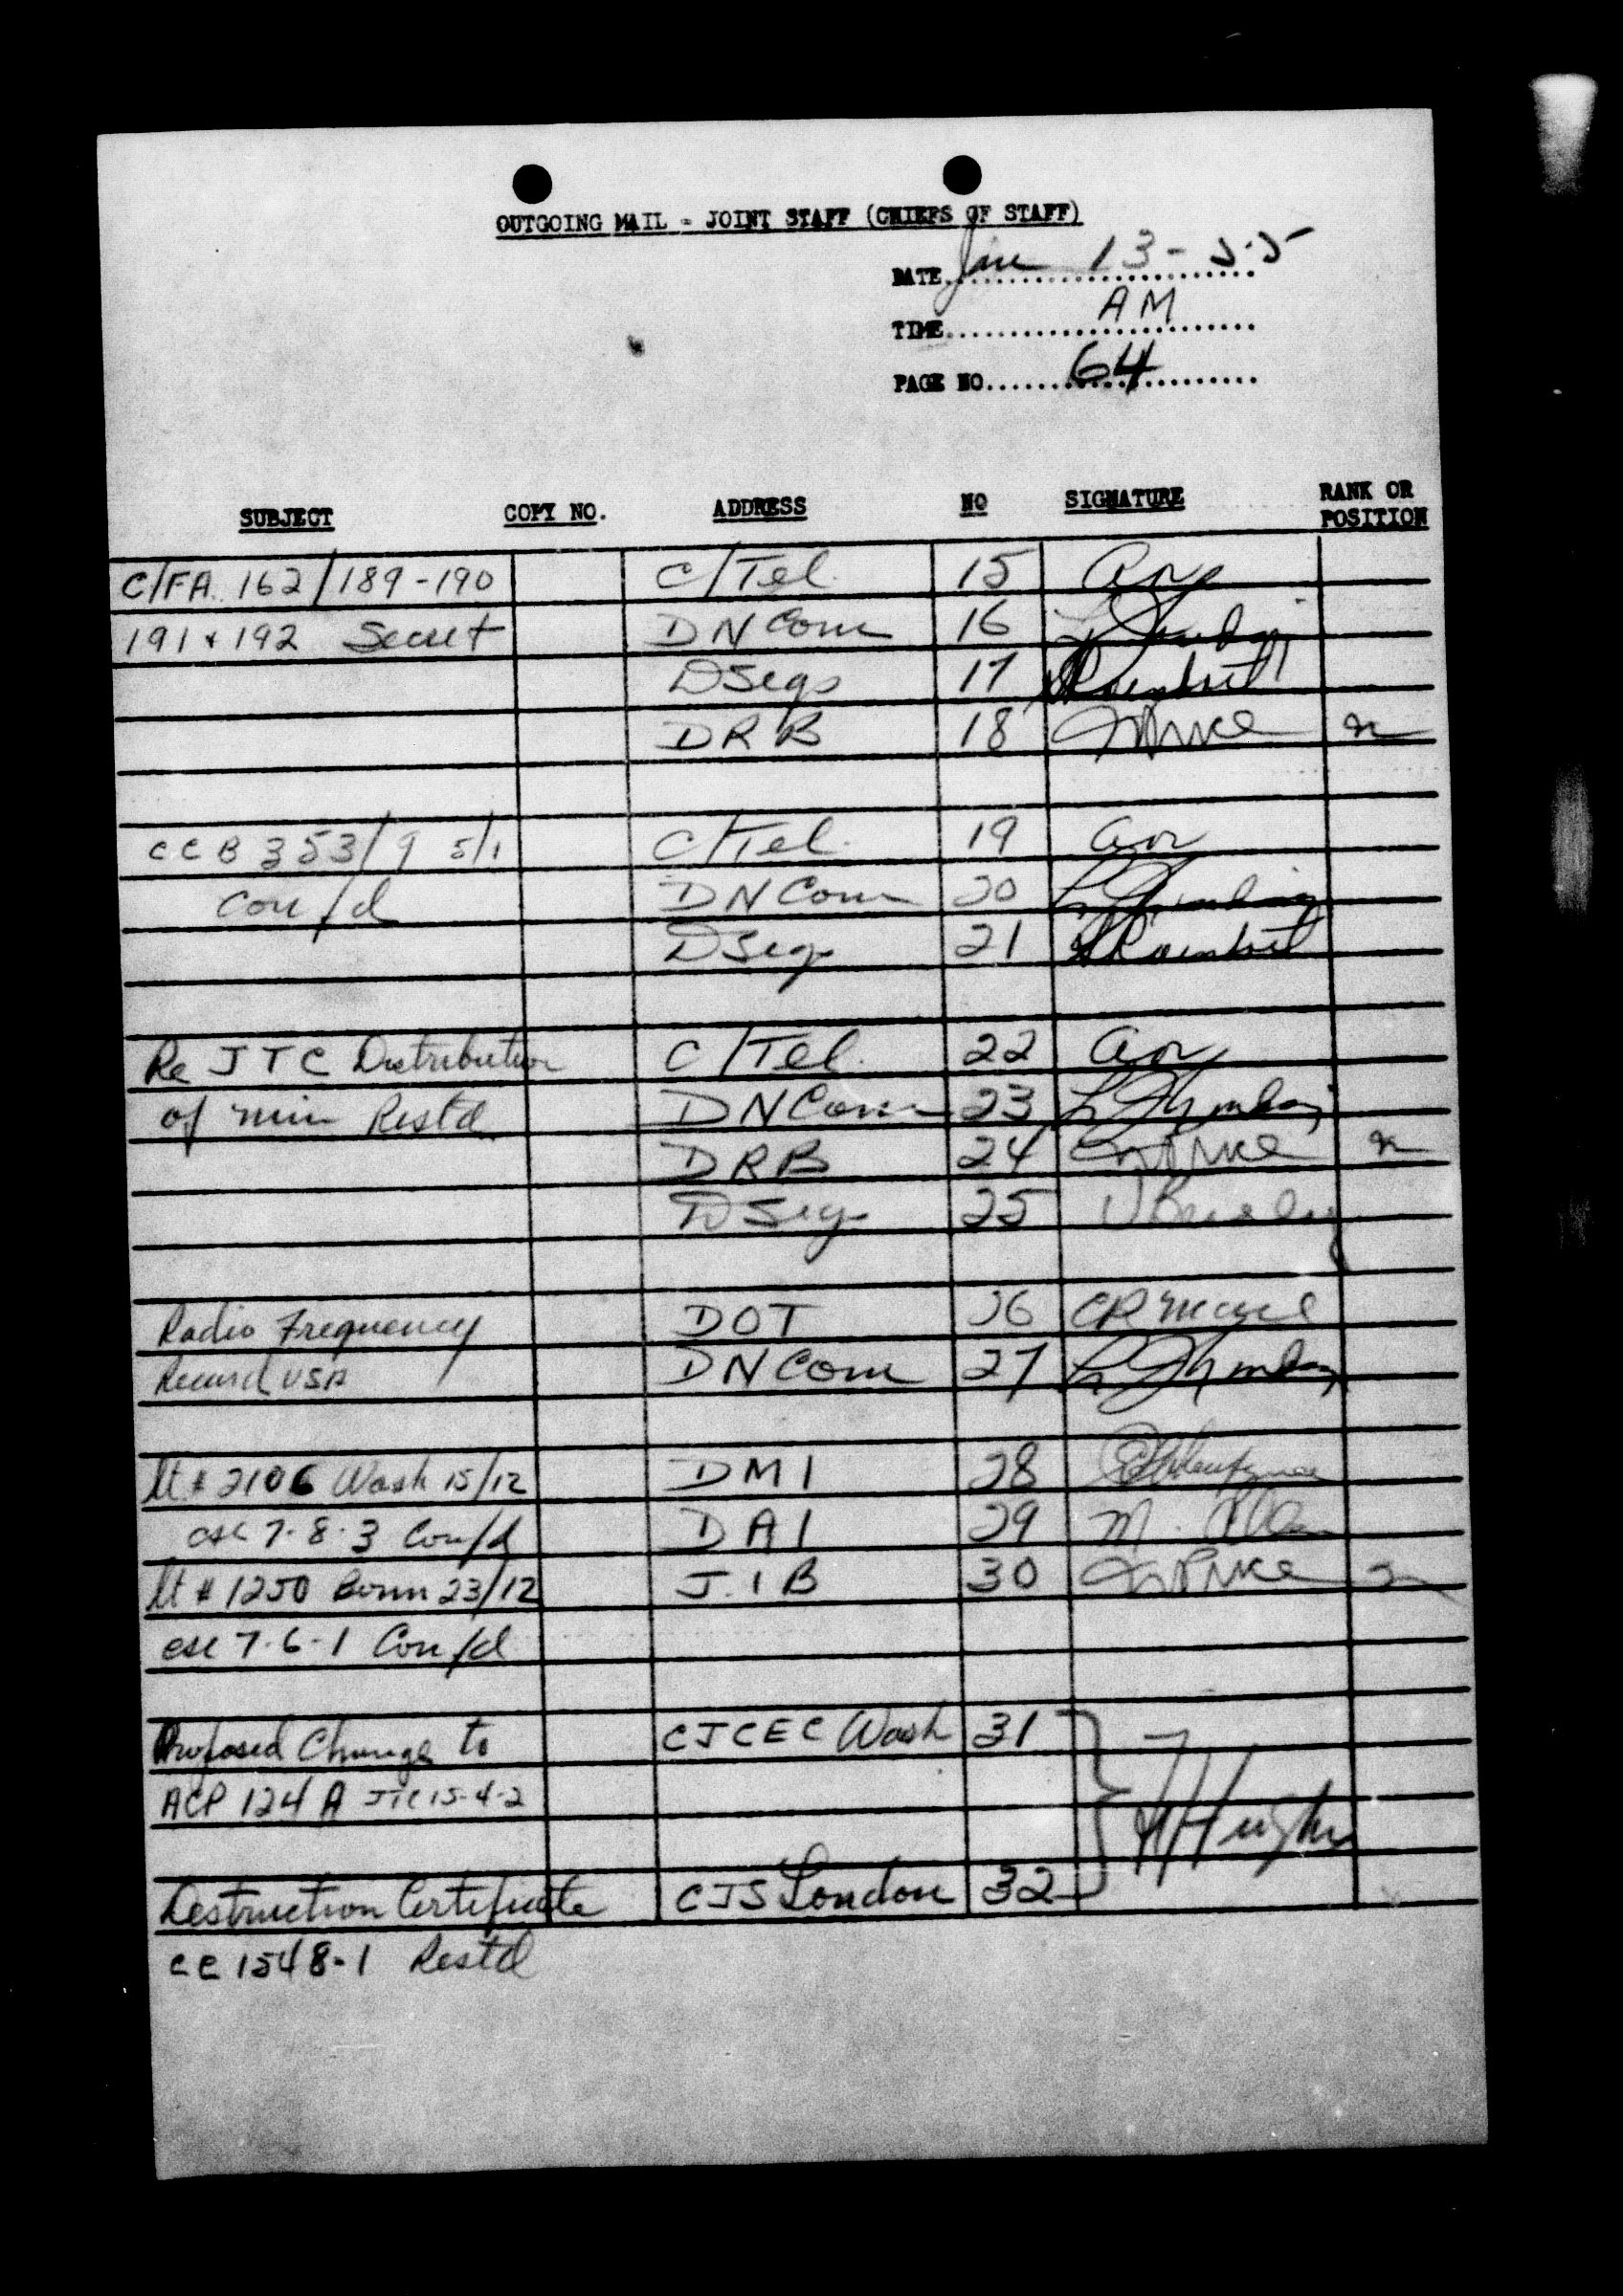 OUTGOING MAIL - JOINT STAFF (CHIEFS OF STAFF)
DATE Jan 13-55
TIME AM
PAGE NO 64
SUBJECT COPY NO. ADDRESS NO SIGNATURE RANK OR POSITION
C/FA 162/189-190 C/Tel. 15
191 & 192 Secret DN Com 16
DSegs 17
DRB 18
CCB 353/9 5/1 C/Tel. 19
Con/d DN Com 20
DSegs 21
Re JTC Distribution C/Tel. 22
of min Restd DN Com 23
DRB 24
DSegs 25
Radio Frequency DOT 26
Record USA DN Com 27
lt # 2106 Wash 15/12 DMI 28
csc 7-8-3 Con/d DAI 29 M.
lt # 1250 Bonn 23/12 J.I B 30
csc 7-6-1 Con/d
Proposed Change to CJCEC Wash 31
ACP 124 A JTC 15-4-2
Hughes
Destruction Certificate CJS London 32
CC 1548-1 Restd